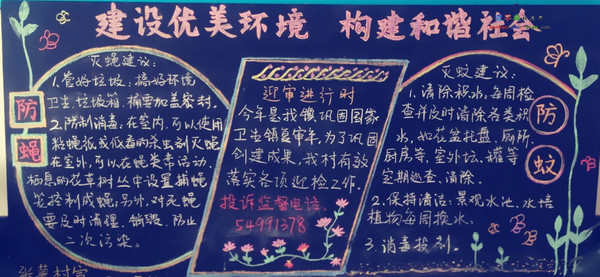 建设优美环境 构建和谐社会
灭蝇建议:
1.管好垃圾:搞好环境
卫生.垃圾箱,桶要加盖密封.
2.防制消毒:在室内,可以使用
粘蝇纸或低毒的杀虫剂灭蝇
在室外,可以在蝇类等活动,
栖息的花草树丛中设置捕蝇
笼控制成蝇,另外,对灭蝇
要及时清理、销毁、防止
二次污染
防
蝇
迎审进行时
今年是我镇巩固国家
卫生镇复审年,为了巩固
创建成果,我村有效
落实各项迎检工作.
投诉监督电话
54991378
灭蚊建议:
1.清除积水,每周检
查并及时清除各类积
水,如花盆托盘、厕所、
厨房等,室外坑、罐等
定期巡查、清除.
2.保持清洁:景观水池、水培
植物每周换水.
3.消毒挨剂.
防
蚊